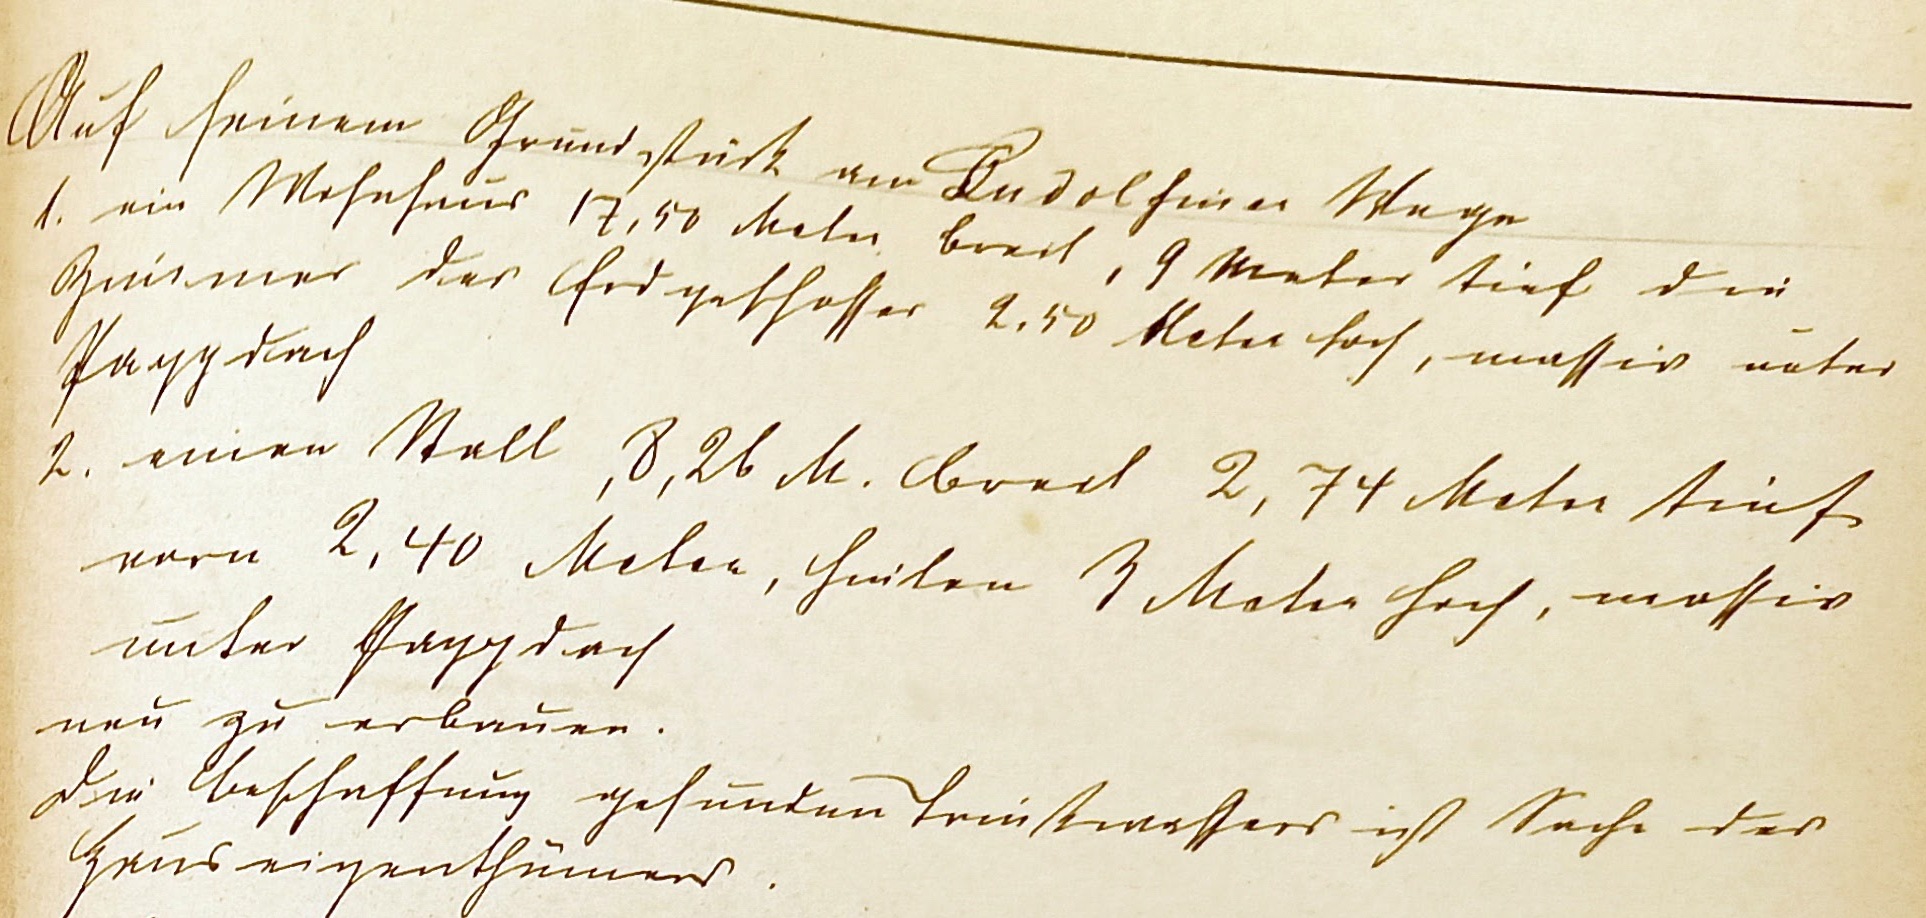 Auf seinem Grundstück am Rudolfiner Wege
1. ein Wohnhaus 17,50 Meter breit, 9 Meter tief die
Zimmer des Erdgeschosses 2.50 Meter hoch, massiv unter
Pappdach
2. einen Stall, 8,26 M. breit 2,74 Meter tief
vorn 2,40 Meter, hinten 3 Meter hoch, massiv
unter Pappdach
neu zu erbauen.
Die Beschaffung gesunden Trinkwassers ist Sache des
Hauseigenthümers.